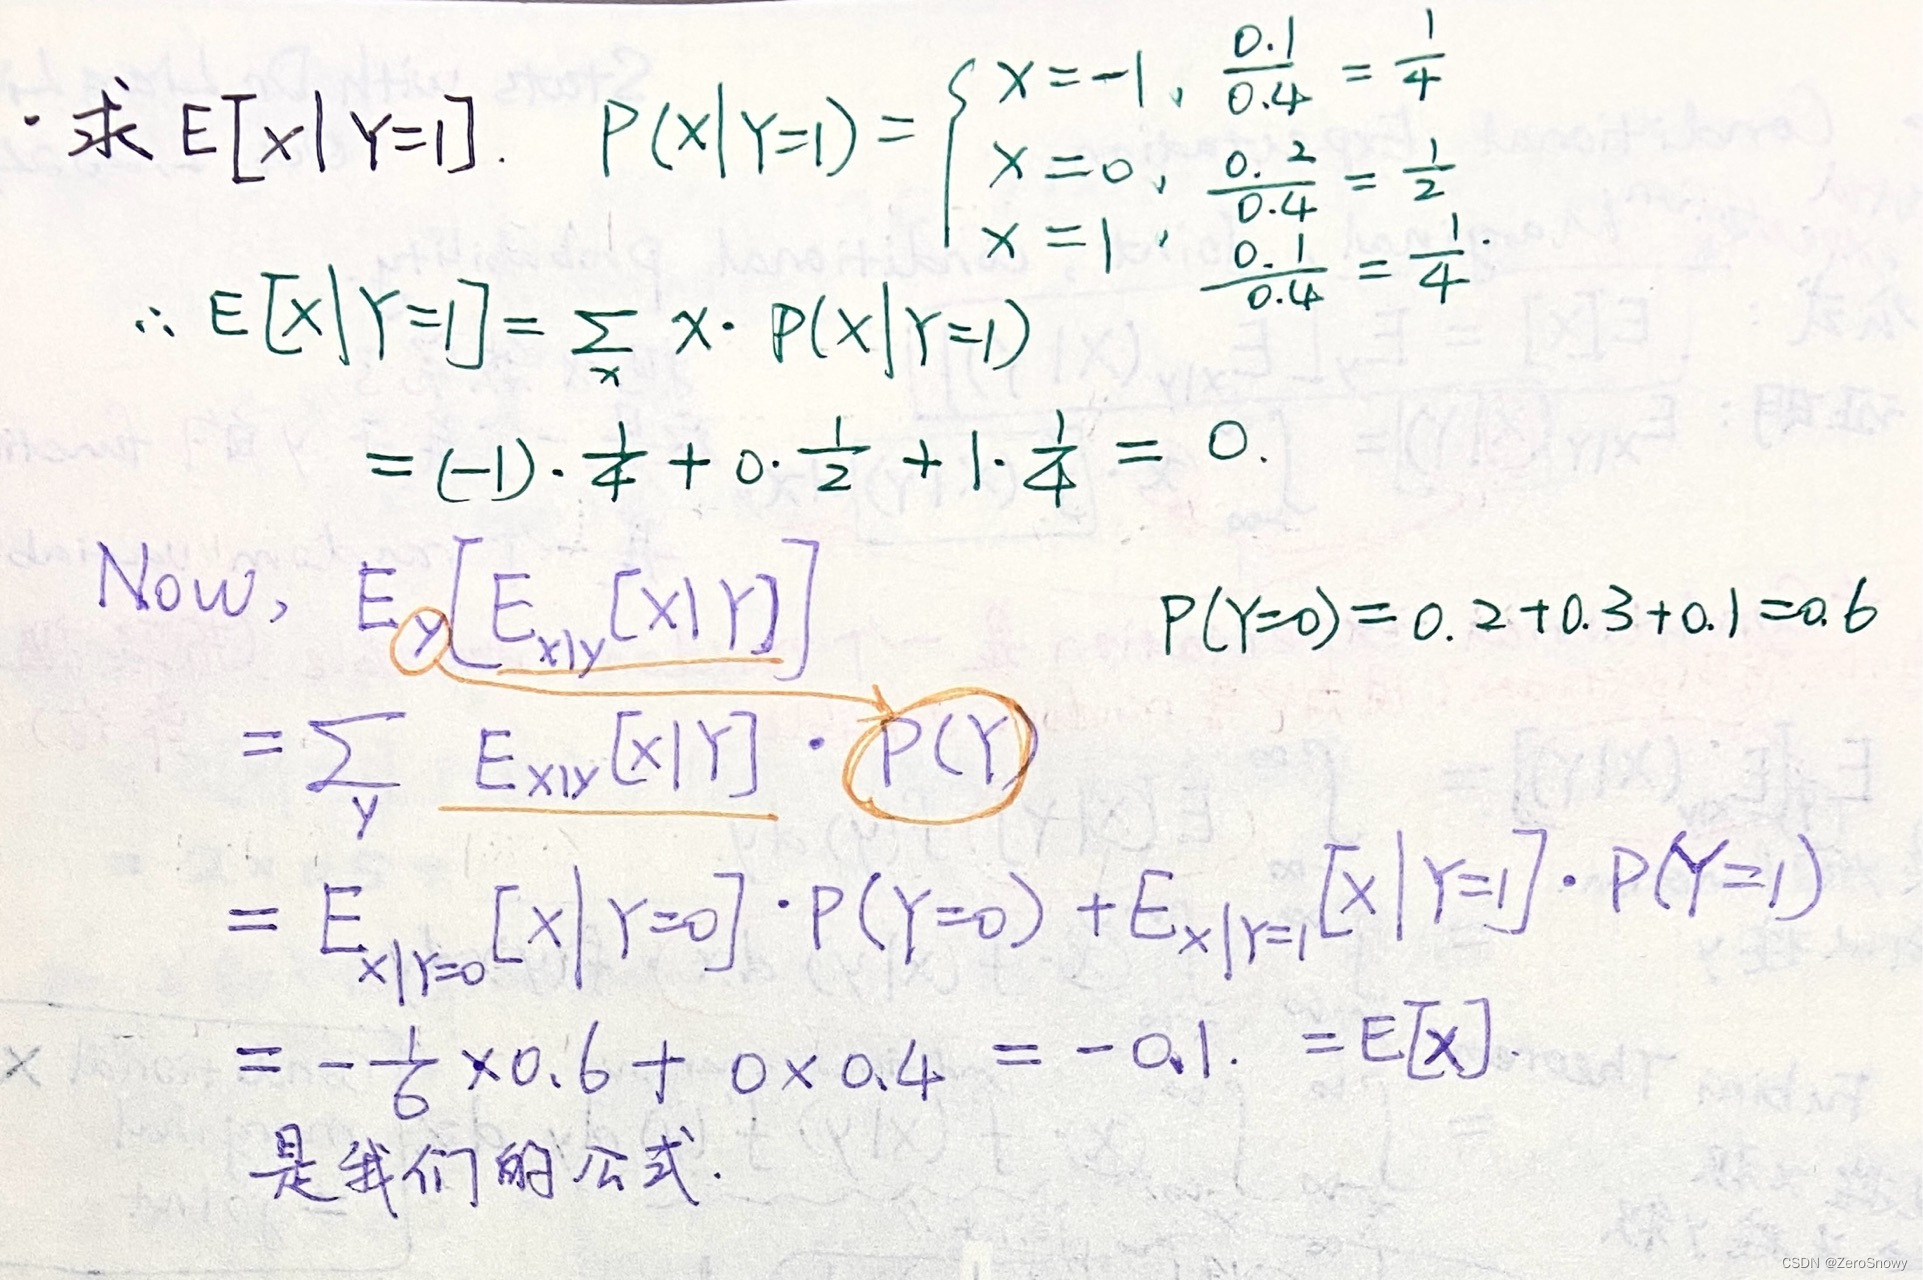 · 求 E[X|Y=1]. P(X|Y=1) = { X=-1, 0.1/0.4 = 1/4
X=0, 0.2/0.4 = 1/2
X=1, 0.1/0.4 = 1/4.
∴ E[X|Y=1] = Σ_x X· P(X|Y=1)
= (-1)·1/4 + 0·1/2 + 1·1/4 = 0.
Now, E_Y[E_{X|Y}[X|Y]]
P(Y=0) = 0.2+0.3+0.1=0.6
= Σ_Y E_{X|Y}[X|Y] · P(Y)
= E_{X|Y=0}[X|Y=0]·P(Y=0) + E_{X|Y=1}[X|Y=1]·P(Y=1)
= -1/6 ×0.6 + 0×0.4 = -0.1. = E[X].
是我们的公式.
CSDN @ZeroSnowy